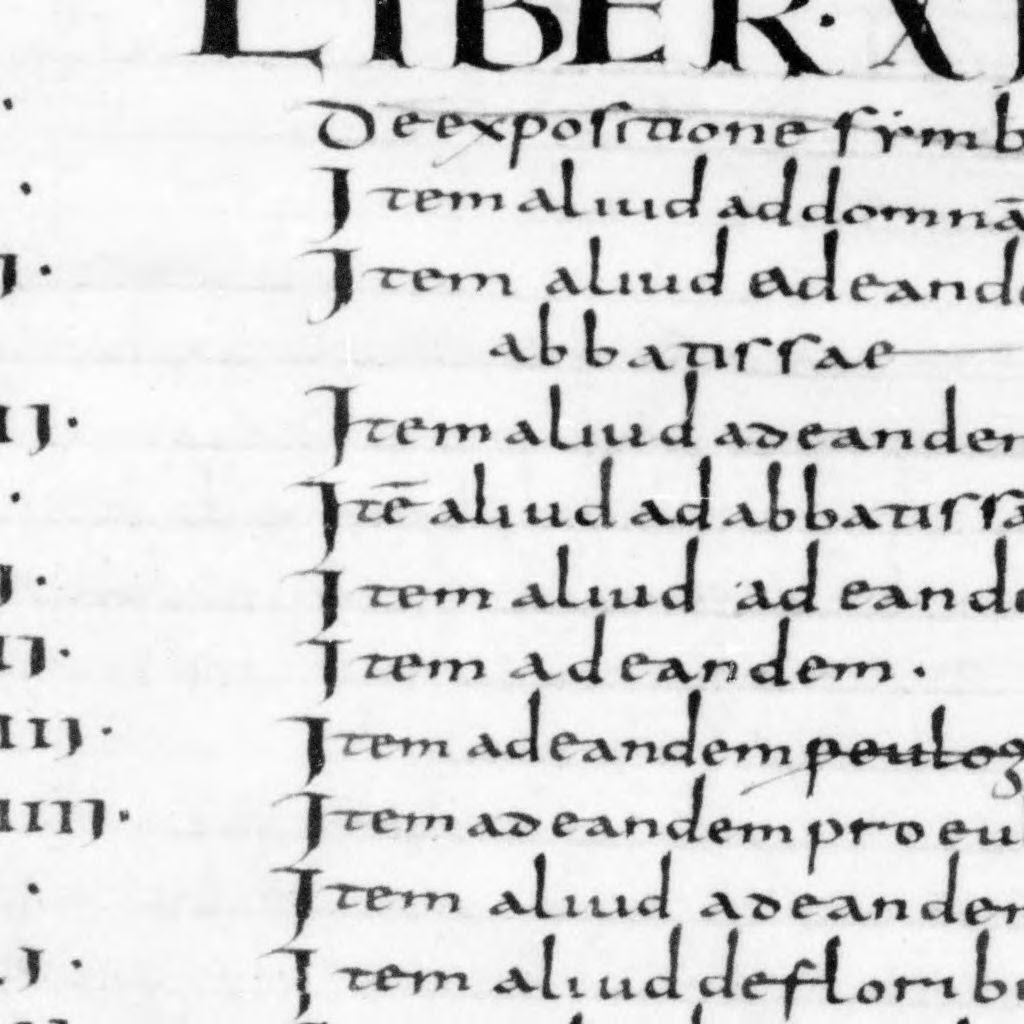 LIBER· XI
De expositione symb
Item aliud ad domnā
J· Item aliud ad eande
abbatissae
IJ· Item aliud ad eandem
· Itē aliud ad abbatissa
J· Item aliud ad eande
IJ· Item ad eandem·
IIJ· Item ad eandem peulog
IIIIJ· Item ad eandem pro eu
· Item aliud ad eandem
J· Item aliud de floribu